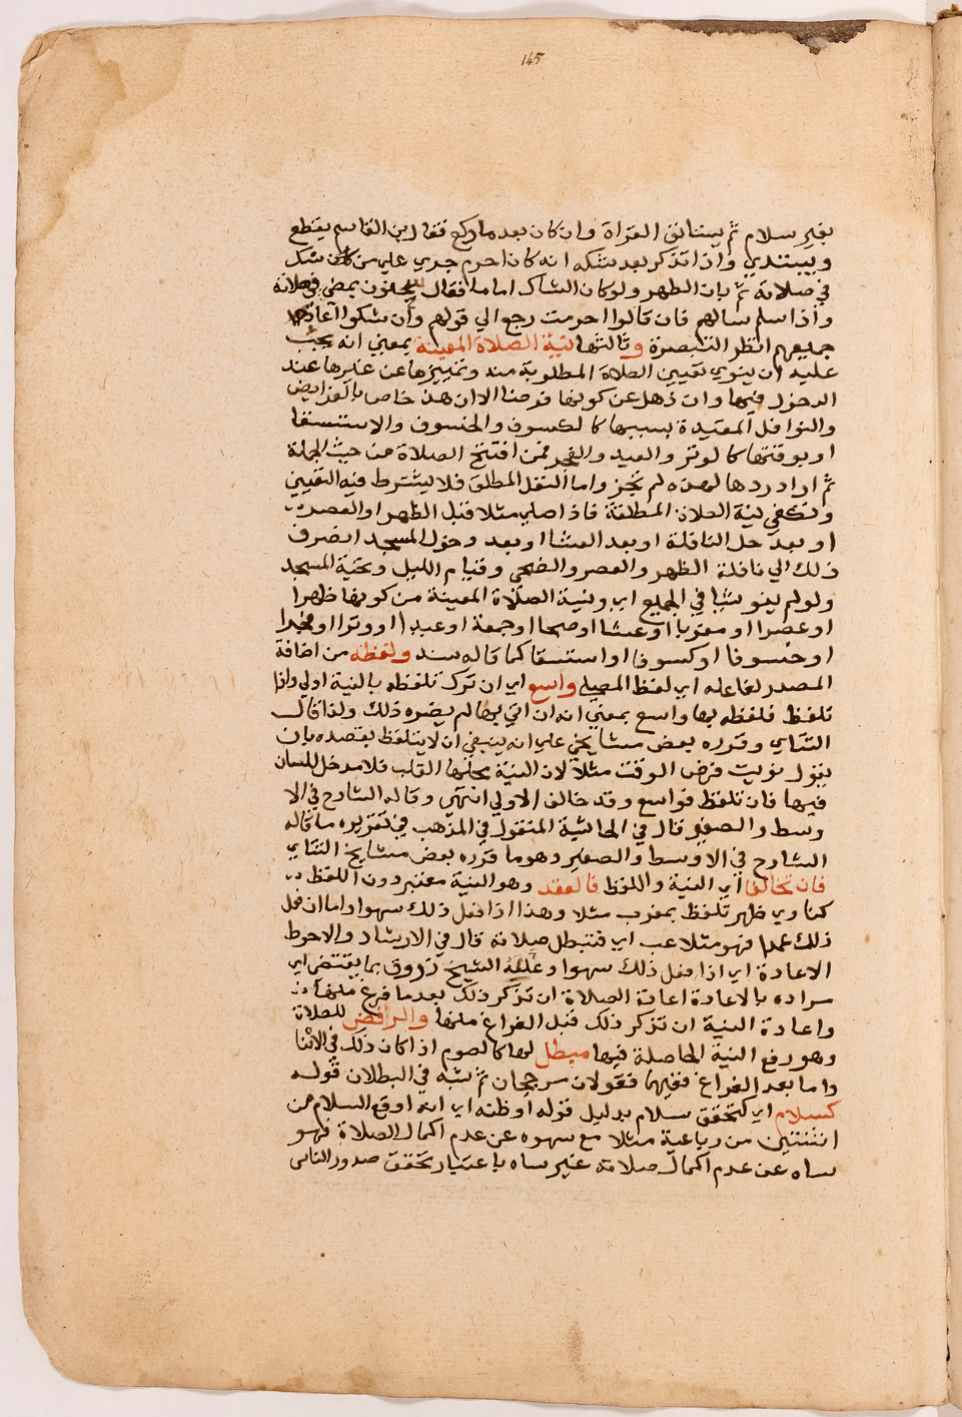 145
بغير سلام ثم يستانف القراة وان كان بعد ما ركع فقال ابن القاسم يقطع
ويبتدي واذا تذكر بعد شكه انه كان احرم جري علي من شك
في صلاته ثم بان الطهر ولو كان الشاك اماما فقال سحنون يمضي في صلاته
واذا سلم سالهم فان قالوا احرمت رجع الي قولهم وان شكوا اعادوا
جميعهم انظر التبصرة وثالثها نية الصلاة المعينة بمعني انه يجب
عليه ان ينوي تعيين الصلاة المطلوبة منه وتمييزها عن غيرها عند
الدخول فيها وان ذهل عن كونها فرضا الا ان هذا خاص بالفرايض
والنوافل المقيدة بسببها كالكسوف والخسوف والاستسقا
او بوقتها كالوتر والعيد والفجر فمن افتتح الصلاة من حيث الجملة
ثم اراد ردها لهذه لم تجز واما النفل المطلق فلا يشترط فيه التعيين
وتكفي نية الصلاة المطلقة فاذا صلي مثلا قبل الظهر او العصر
او بعد حل النافلة او بعد العشا او بعد دخول المسجد انصرف
ذلك الي نافلة الظهر والعصر والضحي وقيام الليل وتحية المسجد
ولو لم ينو شيا في الجميع اي ونية الصلاة المعينة من كونها ظهرا
او عصرا او مغربا او عشا او صبحا او جمعة او عيدا او وترا او فجرا
او خسوفا او كسوفا او استسقا كما قاله سند ولفظه من اضافة
المصدر لفاعله اي لفظ المصلي واسع اي ان ترك تلفظه بالنية اولي واذا
تلفظ فلفظه بها واسع بمعني انه ان اتي بها لم يضره ذلك ولذا قال
التتاي وقرره بعض مشايخي علي انه ينبغي ان لا يتلفظ بقصده بان
يقول نويت فرض الوقت مثلا لان النية محلها القلب فلا مدخل للسان
فيها فان تلفظ فواسع وقد خالف الاولي انتهي وقاله الشارح في الا
وسط والصغير قال في الحاشية المنقول في المذهب في تقريره ما قاله
الشارح في الاوسط والصغير وهو ما قرره بعض مشايخ التتاي
فان تخالفا اي النية واللفظ فالعقد وهو النية معتبر دون اللفظ
كناوي ظهر تلفظ بمغرب مثلا وهذا اذا فعل ذلك سهوا واما ان فعل
ذلك عمدا فهو متلاعب اي فتبطل صلاته قال في الارشاد والاحوط
الاعادة اي اذا فعل ذلك سهوا وعلله الشيخ زروق بما يقتضي اي
مراده بالاعادة اعادة الصلاة ان تذكر ذلك بعد ما فرغ منها
واعادة النية ان تذكر ذلك قبل الفراغ منها والرافض للصلاة
وهو رفع النية الحاصلة فيها مبطل لها كالصوم اذا كان ذلك في الاثنا
واما بعد الفراغ ففيها فقولان مرجحان ثم شبه في البطلان قوله
كسلام اي كتحقق سلام بدليل قوله او ظنه اي انه اوقع السلام من
اثنتين من رباعية مثلا مع سهوه عن عدم اكمال الصلاة فهو
ساه عن عدم اكمال صلاته غير ساه باعتبار تحقق صدور الثاني